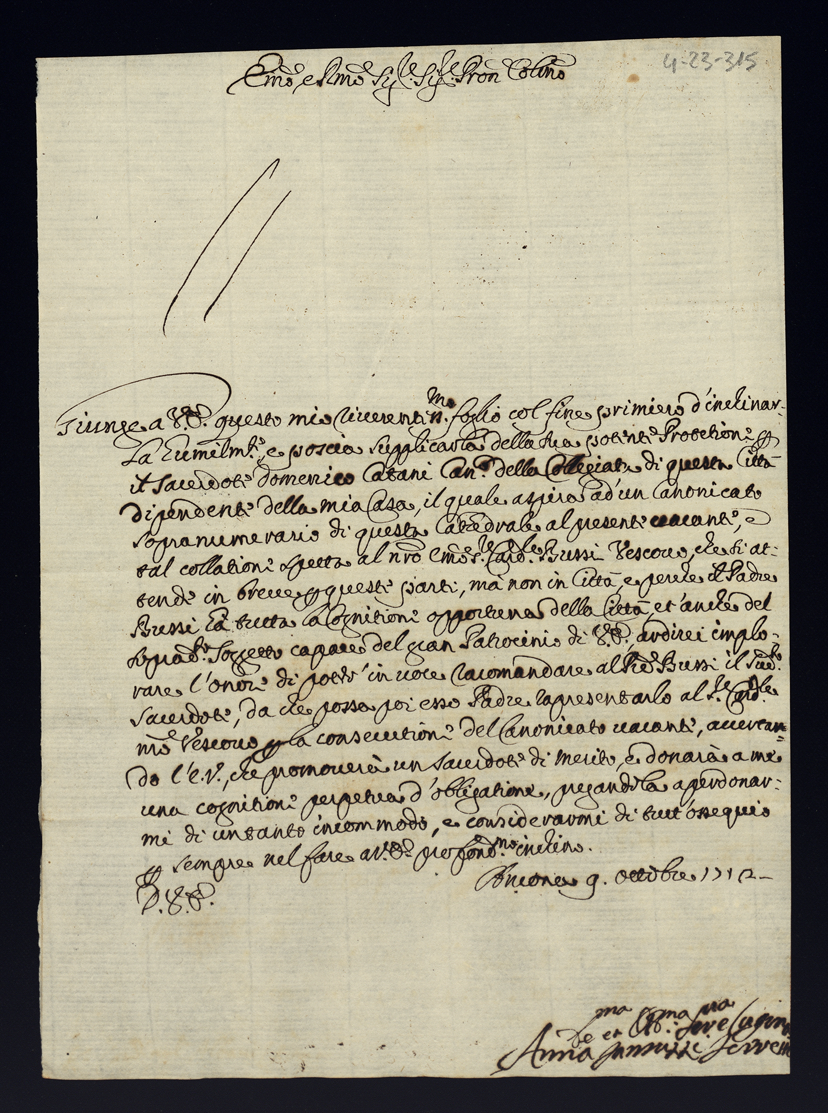 4-23-315
Emo e Rmo Sig.re Sig.re Pron Colmo
Giunge a V.E. questo mio riverentis.mo foglio col fine primiero d'inchinar-
La Humilm.te, e poscia supplicarla della sua potente Protetione p
il Sacerdote domenico Catani Can.co della Collegiata di questa Città
dipendente della mia Casa, il quale aspira ad'un Canonicato
sopranumerario di questa Catedrale al presente vacante, e
tal collatione spetta al nro Emo S.r Card.le Bussi Vescovo, che si at-
tende in breve p queste parti, mà non in Città, e perche il Padre
Bussi hà tutta la Cognitione opportuna della Città et'anche del
Soggetto capace del gran Patrocinio di V.E. ardirei implo-
rare l'onore di poter in voce racomandare al P.re Bussi il sud.to
Sacerdote, da che possa poi esso Padre rapresentarlo al S.r Card.le
mo Vescovo p la consecutione del Canonicato vacante, accertan-
do l'E.V., che promoverà un Sacerdote di merito, e donarà a me
una cognitione perpetua d'obligatione, pregandola a perdonar-
mi di un tanto incommodo, e considerarmi di tutt'ossequio
p sempre nel fare a V.E. profond.mo inchino.
Ancona 9. ottobre 1712
D. V. E.
ma ma ma
De et Obl. Serve
Anna